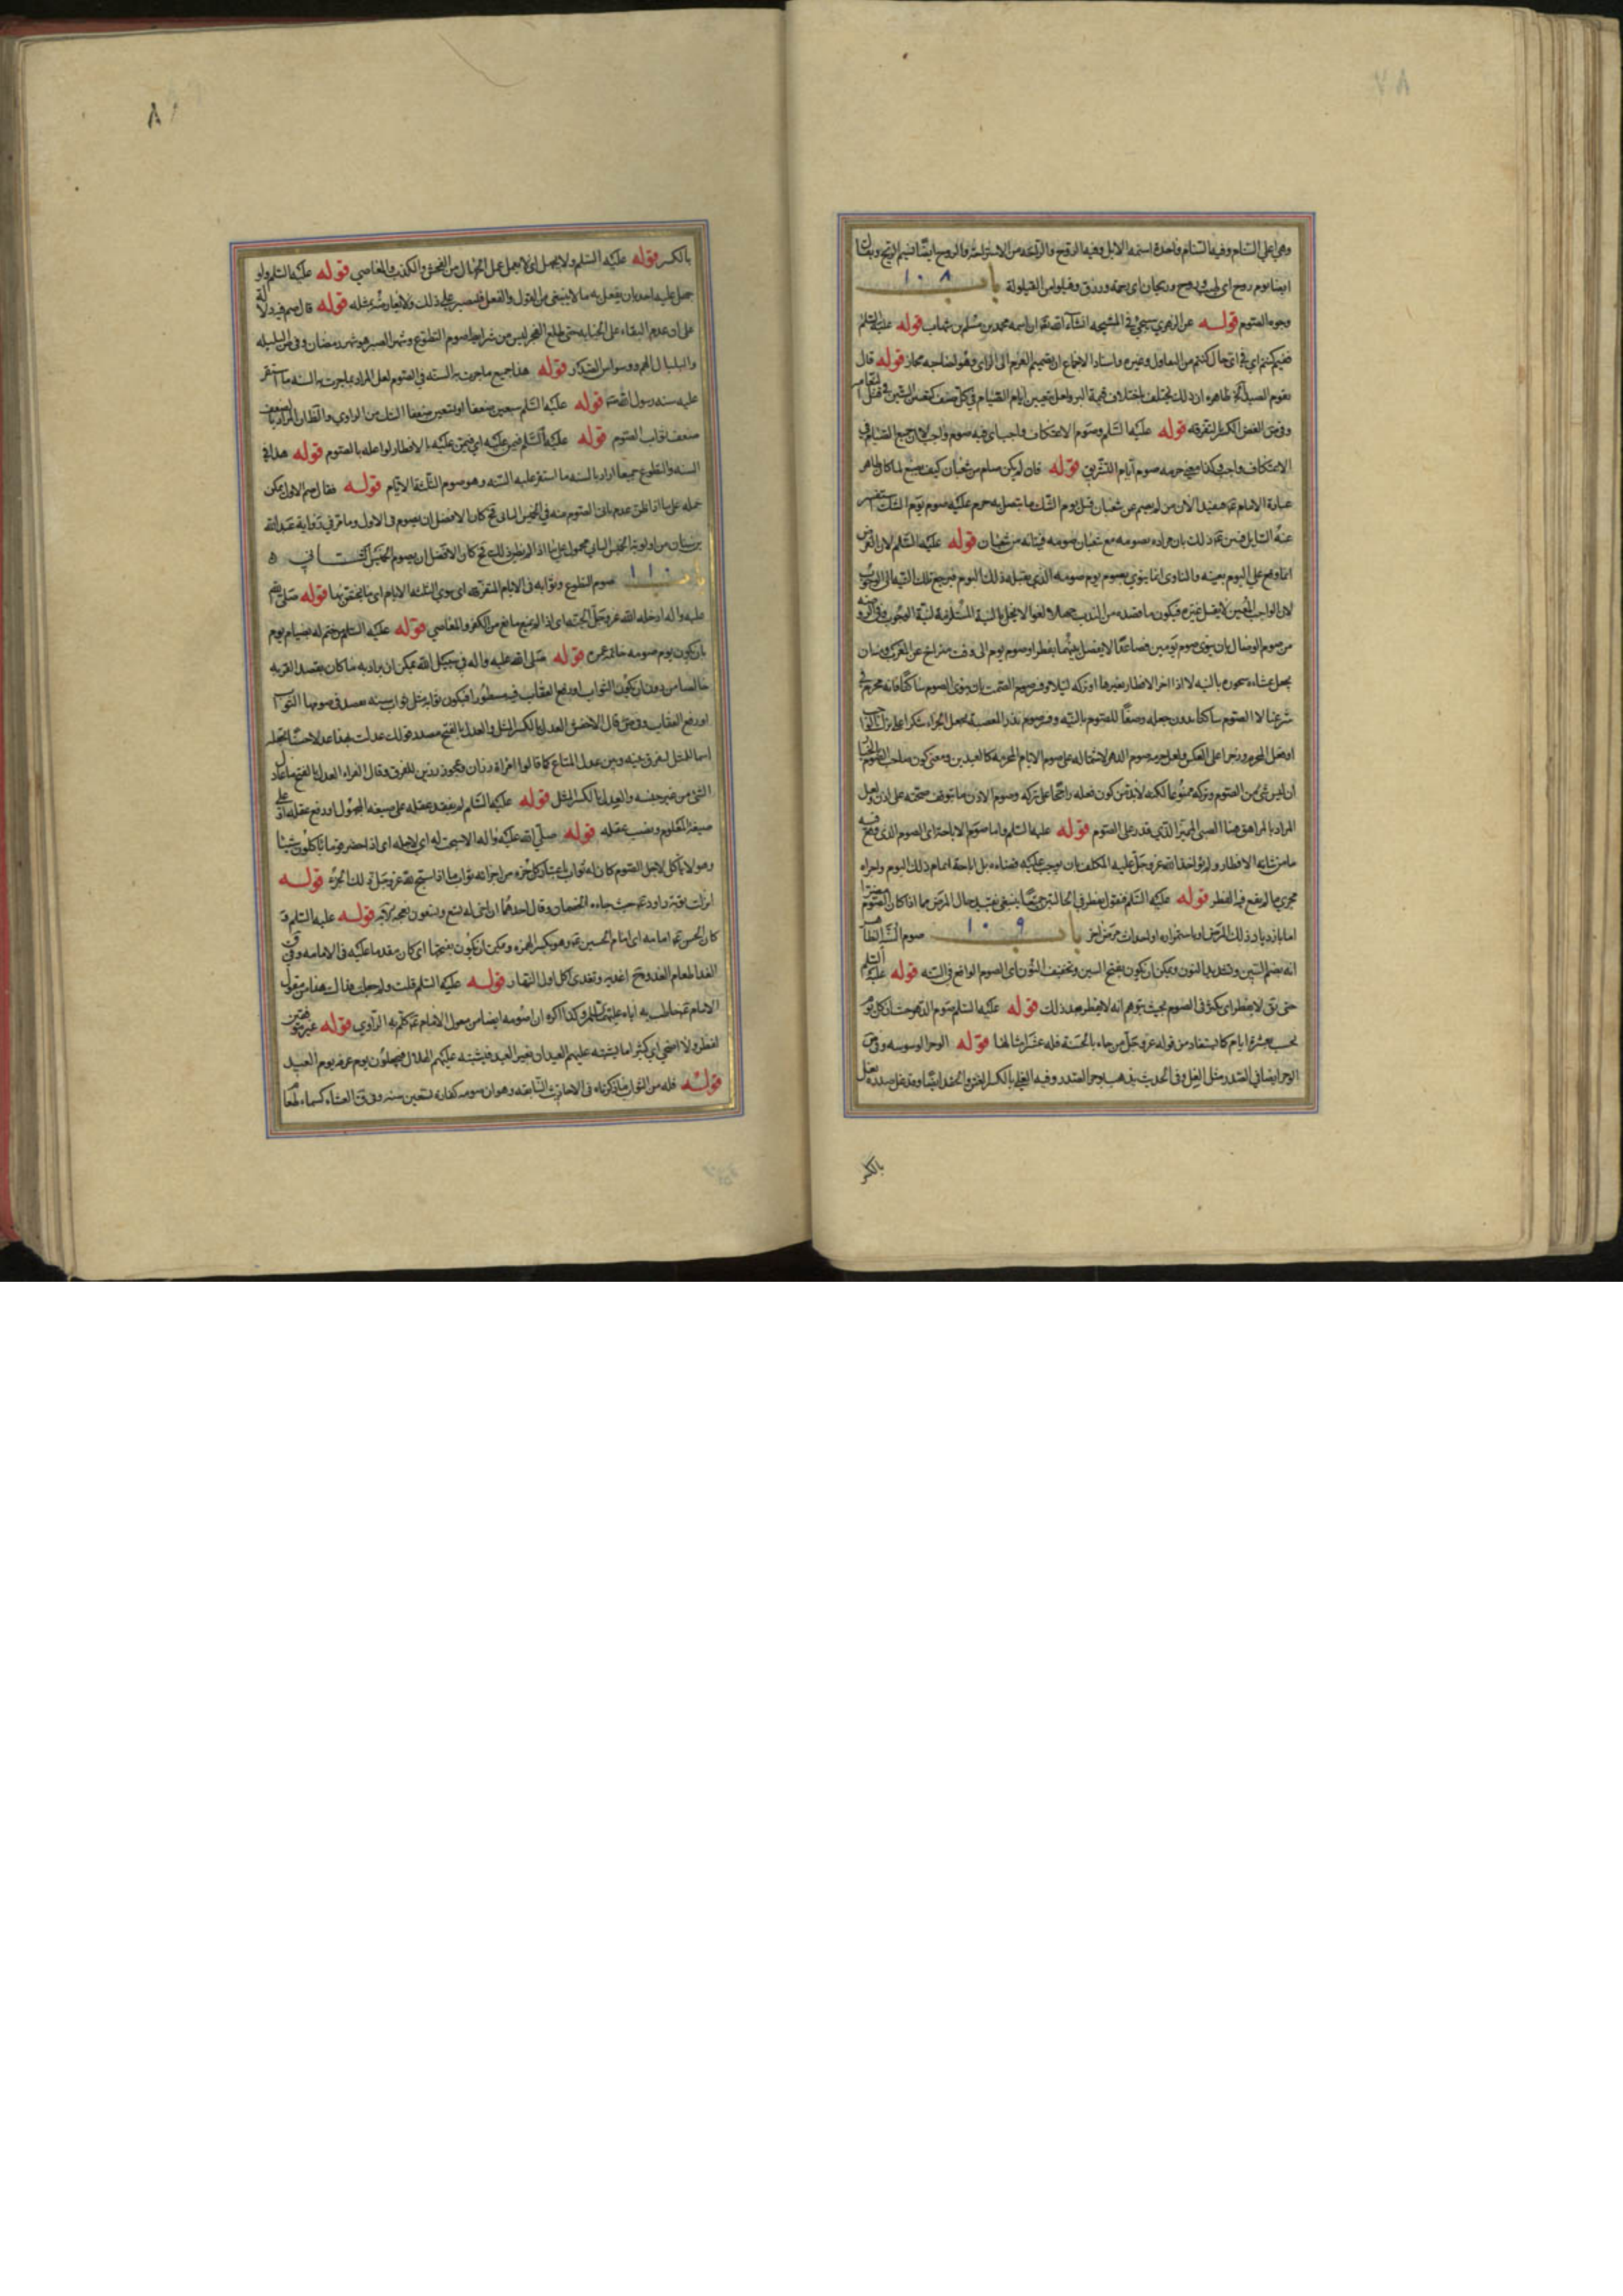 وهي اعلي السنام وفيه السنام واحدة اسنمه الابل وفيه الروح والراحة من الاستراحة والروح ايضا نسيم الريح ويقال
ايضا يوم روح اي طيب وروح وريحان اي رحمة ورزق وقيلوا من القيلولة باب ١٠٨
وجوه الصوم قوله عن الزهري سيجئ في المشيخه انشاء الله تعا ان اسمه محمد بن مسلم بن شهاب قوله عليه السلم
ففيم كنتم اي في اي حال كنتم من
يقوم الصيد الخ ظاهره ان ذلك يختلف باختلاف قيمة البر ولعل تعيين ايام الصيام في كل صنف
وفي ص الفض الكسر بالتفرقه قوله عليه السلم وصوم الاعتكاف واجب اي فيه صوم واجب لان جميع الصيام في
الاعتكاف واجب وكذا معني حرمه صوم ايام التشريق قوله فان لم يكن صام من شعبان كيف يصنع لما كان ظاهر
عبارة الامام ع مفيدا لان من لم يصم من شعبان قبل يوم الشك ما يتصل به حرم عليه صوم يوم الشك استفسر
عنه السايل فبين ع ذلك بان مراده بصومه مع شعبان صومه فيه بانه من شعبان قوله عليه السلم لان الفرض
انما وقع علي اليوم بعينه والناوي انما ينوي بصوم يوم صومه الذي يقبله ذلك اليوم فيرجع تلك النيه الي الوجوب
لان الواجب المعين لا يقبل غيره فيكون ما قصده من الندب جهلا ولغوا لا يخل بالنية المستلزمة لنية الوجوب
من صوم الوصال بان ينوي صوم يومين فصاعدا لا يفصل بينهما بفطر او صوم يوم الي وقت متراخ عن المغرب وبان
يجعل عشاءه سحوره بالنيه لا اذا اخر الافطار بغيرها او تركه ليلا وفسر صوم الصمت بان ينوي الصوم ساكتا فانه محرم في
شرعنا لا الصوم ساكتا بدون جعله وصفا للصوم بالنيه وفسر صوم نذر المعصية بجعل الجزاء شكرا علي ترك الواجب
او فعل المحرم وزجرا علي العكس ولعل حرمه صوم الدهر لاشتماله علي صوم الايام المحرمه كالعيدين ومعني كون صاحب الصوم بالخيار
ان ليس شئ من الصوم وتركه ممنوعا لكنه لا بد من كون فعله راجحا علي تركه وصوم الاذن ما يتوقف صحته علي اذن ولعل
المراد بالمراهق هنا الصبي المميز الذي يقدر علي الصوم قوله عليه السلم واما صوم الاباحة اي الصوم الذي وقع فيه
ما من شانه الافطار ولم يؤاخذ الله عز وجل عليه المكلف بان يوجب عليه قضاءه بل اباحه اتمام ذلك اليوم واجراه
مجري ما لم يقع فيه الفطر قوله عليه السلم فنقول يفطر في الحالتين جميعا ينبغي تقييد حال المرض بما اذا كان الصوم مضرا
اما بازدياد ذلك المرض او باستمراره او باحداث مرض اخر باب ١٠٩ صوم السنه الظاهر
انه بضم السين وتشديد النون ويمكن ان يكون بفتح السين وتخفيف النون اي الصوم الواقع في السنه قوله عليه السلم
حتي يق لا يفطر اي يكثر في الصوم بحيث يتوهم انه لا يفطر بعد ذلك قوله عليه السلم صوم الدهر حيث ان كل يوم
يحسب بعشرة ايام كما يستفاد من قوله عز وجل من جاء بالحسنة فله عشر امثالها قوله الوحر الوسوسه وفي ص
الوحر ايضا في الصدر مثل الغل وفي الحديث يذهب بوحر الصدر وفيه الغل بالكسر الغش والحقد ايضا وقد غل صدره يغل
بالكسر
بالكسر قوله عليه السلم ولا يجهل اي لا يعمل عمل الجهال من الفحش والكذب والمعاصي قوله عليه السلم ولو
جهل عليه احد بان يفعل به ما لا ينبغي من القول والفعل فليصبر علي ذلك ولا يعارضه بمثله قوله قال صم فيه دلالة
علي ان عدم البقاء علي الجنابه حتي يطلع الفجر ليس من شرايط صوم التطوع وشهر الصبر هو شهر رمضان وفي ص البلبله
والبلبال الهم ووسواس الصدر قوله هذا جميع ما جرت به السنه في الصوم لعل المراد بما جرت به السنه ما استقر
عليه سنه رسول الله ص قوله عليه السلم سبعين ضعفا او تسعين ضعفا الشك من الراوي والظاهر المراد بالضعف
ضعف ثواب الصوم قوله عليه السلم فيمن عليه اي فيمن عليه بالافطار لو اعلمه بالصوم قوله هذا في
السنه والتطوع جميعا اراد بالسنه ما استقر عليه السنه وهو صوم الثلثة الايام قوله فقال صم الاول يمكن
حمله علي ما اذا ظن عدم تاتي الصوم منه في الخميس الثاني فح كان الافضل ان يصوم في الاول وما مر في رواية عبد الله
بن سنان من اولوية الخميس الثاني محمول علي ما اذا لم يظن ذلك فح كان الافضل ان يصوم الخميس الثاني
باب ١١٠ صوم التطوع وثوابه في الايام المتفرقه اي سوي الثلثه الايام اي ما يختص بها قوله صلي الله
عليه واله ادخله الله عز وجل الجنة اي اذا لم يمنع مانع من الكفر والمعاصي قوله عليه السلم من ختم له بصيام يوم
بان يكون يوم صومه خاتمة عمره قوله صلي الله عليه واله في سبيل الله يمكن ان يراد به ما كان بقصد القربه
خالصا من دون ان يكون الثواب او رفع العقاب فيه منظورا فيكون ثوابه مثل ثواب سنه يقصد في صومها الثواب
او دفع العقاب وفي ص قال الاخفش العدل بالكسر المثل والعدل بالفتح مصدر قولك عدلت بهذا عدلا حسنا تجعله
اسما للمثل لتفرق بينه وبين عدل المتاع كما قالوا امراة رزان وعجوز رزين للفرق وقال الفراء العدل بالفتح ما عادل
الشئ من غير جنسه والعدل بالكسر المثل قوله عليه السلم لم يفقد عقله علي صيغه المجهول او رفع عقله او علي
صيغة المعلوم ونصب عقله قوله صلي الله عليه واله الا سبحت له اي لاجله اي اذا حضر قوما ياكلون شيئا
وهو لا ياكل لاجل الصوم كان له ثواب باعتبار كل جزء من اجزائه ثواب ما اذا سبح لله عز وجل ذلك الجزء قوله
انزلت توبة داود ع حيث جاءه الخصمان وقال احدهما ان اخي له تسع وتسعون نعجة الاية قوله عليه السلم ق
كان الحسن ع امامه اي امام الحسين ع وهو بكسر الهمزه ويمكن ان يكون بفتحها اي كان مقدما عليه في الامامه وفي ق
الغدا طعام الغدوة ج اغديه وتغدي اكل اول النهار قوله عليه السلم قلت
الامام ع خاطب به اباه عليهما السلم وكذا اكره ان اصومه ايضا من مقول الامام ع كلم به الراوي قوله غير موفقين
لفطر ولا اضحي اي كثيرا ما يشتبه عليهم العيدان بغير العيد فيشتبه عليهم الهلال فيجعلون يوم عرفه يوم العيد
قوله فله من الثواب ما ذكرناه في الاحاديث السابقه وهو ان صومه كفارة تسعين سنه وفي ق العشاء كسماء طعام